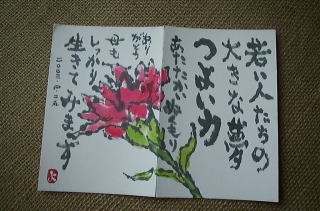 若い人たちの
大きな夢
つよい力
あたたかいぬくもり
ありがとう
母も
しっかり
生きてみます